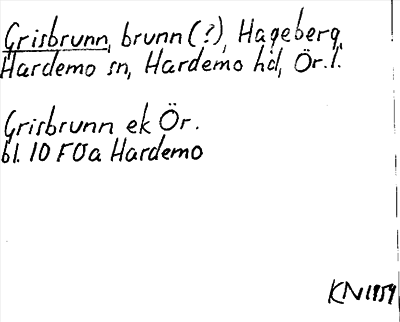 Grisbrunn, brunn (?), Hageberg,
Hardemo sn, Hardemo hd, Ör. l.
Grisbrunn ek Ör.
bl. 10 FÖa Hardemo
KN 1959